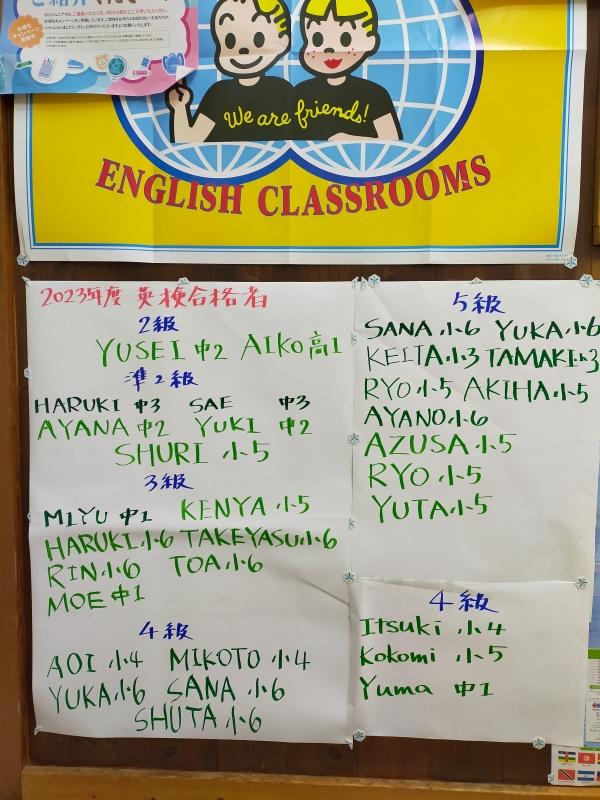 We are friends!
ENGLISH CLASSROOMS
2023年度 英検合格者
2級
YUSEI 中2 AIKO 高1
準2級
HARUKI 中3 SAE 中3
AYANA 中2 YUKI 中2
SHURI 小5
3級
MIYU 中1 KENYA 小5
HARUKI 小6 TAKEYASU 小6
RIN 小6 TOA 小6
MOE 中1
4級
AOI 小4 MIKOTO 小4
YUKA 小6 SANA 小6
SHUTA 小6
5級
SANA 小6 YUKA 小6
KEITA 小3 TAMAKI 小3
RYO 小5 AKIHA 小5
AYANO 小6
AZUSA 小5
RYO 小5
YUTA 小5
4級
Itsuki 小4
Kokomi 小5
Yuma 中1